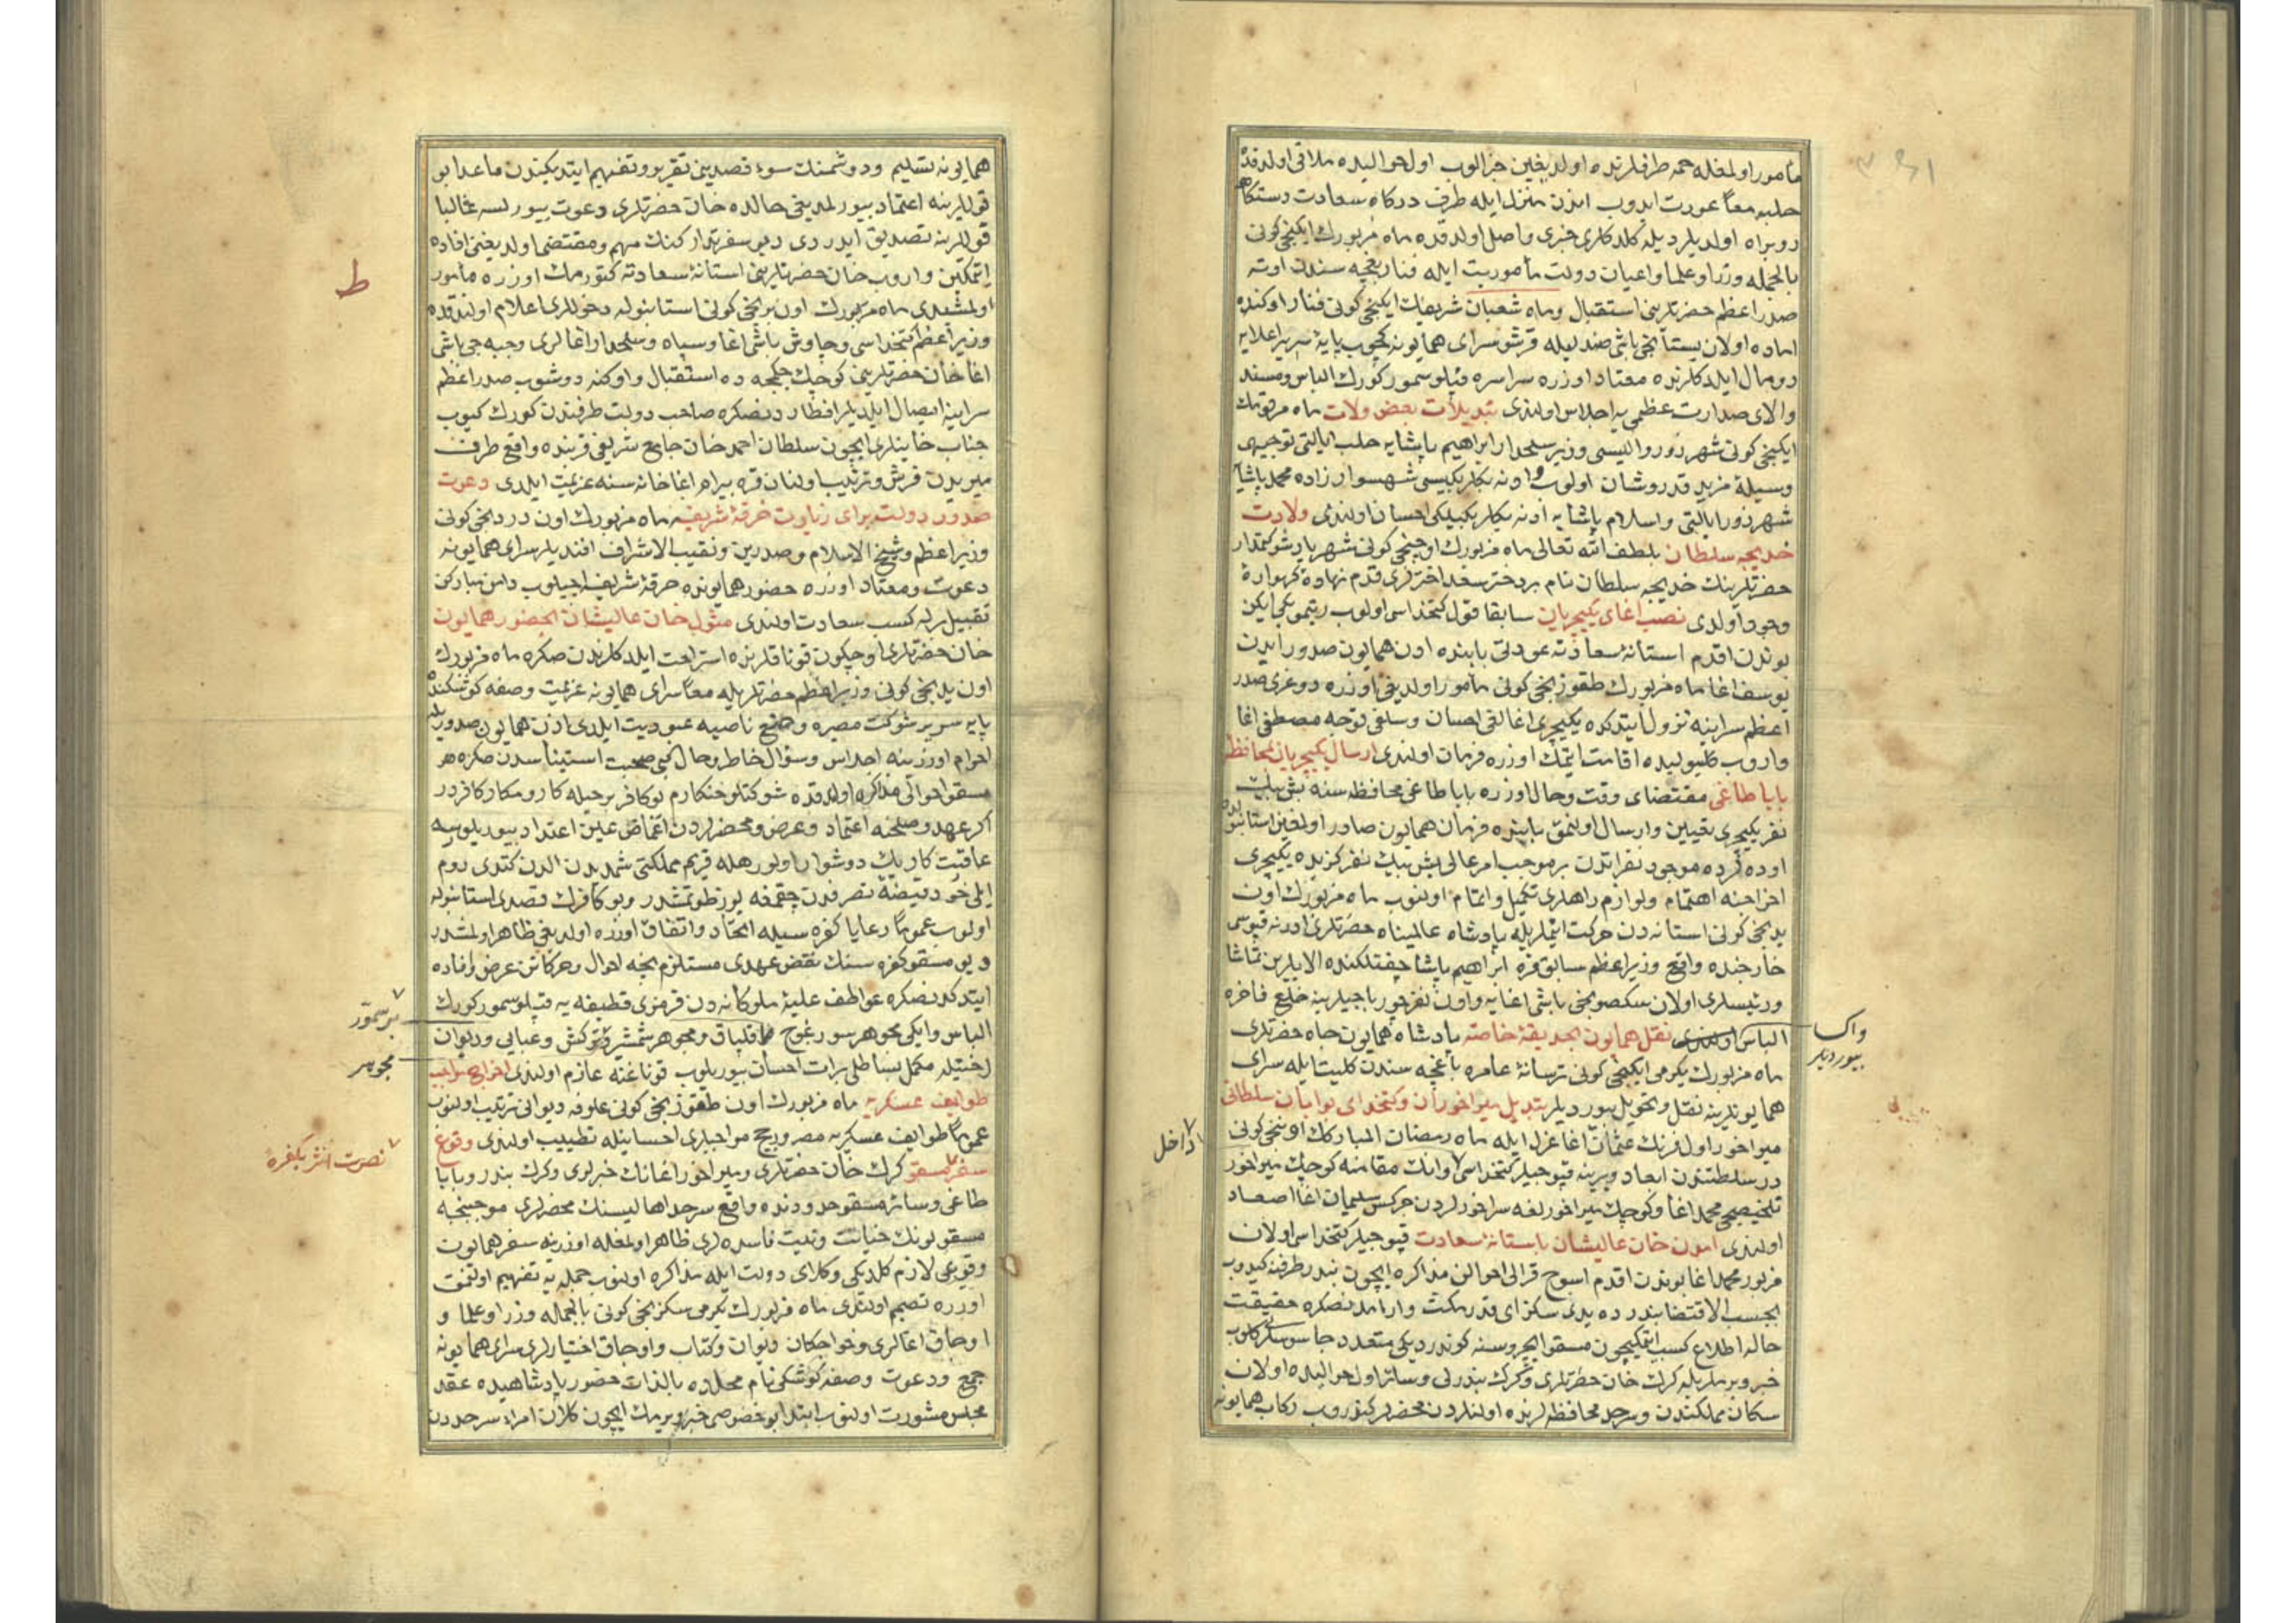 مأمور اولمغله جمه طرفلرنده اولديغين خبر الوب اول حواليده ملاقى اولدقده
حلبه معاً عودت ايدوب اندن منزل ايله طرف دركاه سعادت دستكاهه
روبراه اولديلر ديله كلدكلرى خبرى واصل اولدقده ماه مزبورك ايكنجى كونى
بالجمله وزرا وعلما واعيان دولت مأموريت ايله فنار بغچه سندن اوته
صدر اعظم حضرتلرينى استقبال وماه شعبان شريفك ايكنجى كونى فنار اوكنده
اماده اولان بستانجى باشى صندليله قرشو سراى همايونه كچوب پايۀ سرير اعلايه
رومال ايلدكلرنده معتاد اوزره سراسره قپلو سمور كورك الباس ومسند
والاى صدارت عظمى يه اجلاس اولندى تبديلات بعض ولات ماه مرقومك
ايكنجى كونى شهرزور واليسى وزير سلحدار ابراهيم پاشايه حلب ايالتى توجيهى
وسيلۀ مزيد قدر وشان اولوب وادنه بكلربكيسى شهسوار زاده محمد پاشايه
شهرزور ايالتى واسلام پاشايه ادنه بكلربكيلكى احسان اولندى ولادت
خديجه سلطان بلطف الله تعالى ماه مزبورك اوچنجى كونى شهريار شوكتمدار
حضرتلرينك خديجه سلطان نام بر دختر سعد اخترلرى قدم نهادۀ كهوارۀ
وجود اولدى نصب اغاى يكيچريان سابقا قول كتخداسى اولوب ريتموده ايكن
بوندن اقدم استانۀ سعادته عودتى بابنده اذن همايون صدور ايدن
يوسف اغا ماه مزبورك طقوزنجى كونى مأمور اولديغى اوزره دوغرى صدر
اعظم سراينه نزول ايتدكده يكيچرى اغالغى احسان وسلفى توجه مصطفى اغا
واروب كليبوليده اقامت ايتمك اوزره فرمان اولندى ارسال يكيچريان لمحافظۀ
بابا طاغى مقتضاى وقت وحال اوزره بابا طاغى محافظه سنه بش بيك
نفر يكيچرى تعيين وارسال اولنمق بابنده فرمان همايون صادر اولمغين استانبولده
اوده لرده موجود نفراتدن بر موجب امر عالى بش بيك نفر كزيده يكيچرى
اخراجنه اهتمام ولوازم راهلرى تكميل واتمام اولنوب ماه مزبورك اون
يدنجى كونى استانه دن حركت ايتملريله پادشاه عالمپناه حضرتلرى ادرنه قپوسى
خارجنده واقع وزير اعظم سابق قره ابراهيم پاشا چفتلكنده الايلرين تماشا
ورئيسلرى اولان سكسونجى باشى اغايه واون نفر چورباجيلرينه خلع فاخره
الباس اولندى نقل همايون بحديقۀ خاصه پادشاه همايون جاه حضرتلرى
واكسا
بيورديلر
ماه مزبورك يكرمى ايكنجى كونى ترسانۀ عامره باغچه سندن كليت ايله سراى
همايونلرينه نقل وتحويل بيورديلر تبديل ميراخوران وكتخداى بوابان سلطانى
ميراخور اول فرنك عثمان اغا عزل ايله ماه رمضان المبارك اوننجى كونى
داخل
در سلطنتدن ابعاد ويرينه قپوجيلر كتخداسى وانك مقامنه كوچك ميراخور
تلخيصجى محمد اغا وكوچك ميراخورلغه سراخورلردن چركس سليمان اغا اصعاد
اولندى امدن خان عاليشان باستانۀ سعادت قپوجيلر كتخداسى اولان
مزبور محمد اغا بوندن اقدم اسوج قرالى احوالن مذاكره ايچون بندر طرفنه كيدوب
بحسب الاقتضا بندرده يدى سكز اى قدر مكث وارامدنصكره حقيقت
حاله اطلاع كسب ايتمكيچون مسقو ايچروسنه كوندرديكى متعدد جاسوسلر كلوب
خبر ويرملريله كرك خان حضرتلرى وكرك بندرلى وسائر اول حواليده اولان
سكان مملكتدن وسرحد محافظه لرنده اولنلردن محضرلر كتوروب ركاب همايونه
همايونه تسليم ودوشمنك سوء قصدينى تقرير وتفهيم ايتديكندن ماعدا بو
قوللرينه اعتماد بيورلمديغى حالده خان حضرتلرى دعوت بيورلسه غالبا
قوللرينه تصديق ايدردى ديو سفر تداركنك مهم ومقتضى اولديغنى افاده
ايتمكين واروب خان حضرتلرينى استانۀ سعادته كتورمك اوزره مأمور
ط
اولمشعدى ماه مزبورك اون برنجى كونى استانبوله دخوللرى اعلام اولندقده
وزير اعظم كتخداسى وچاوش باشى اغا وسپاه وسلحدار اغالرى وجبه جى باشى
اغا خان حضرتلرينى كوچك چكمجه ده استقبال واوكنه دوشوب صدر اعظم
سراينه ايصال ايلديلر افطاردنصكره صاحب دولت طرفندن كورك كيوب
جناب خانيلرى ايچون سلطان احمد خان جامع شريفى قربنده واقع طرف
ميريدن فرش وترتيب اولنان قره بيرام اغا خانه سنه عزيمت ايلدى دعوت
صدور دولت براى زيارت خرقۀ شريفه ماه مزبورك اون دردنجى كونى
وزير اعظم وشيخ الاسلام وصدرين ونقيب الاشراف افنديلر سراى همايونه
دعوت ومعتاد اوزره حضور همايونده خرقۀ شريف اچيلوب دامن مباركن
تقبيل برله كسب سعادت اولندى مثول خان عاليشان بحضور همايون
خان حضرتلرى اوچ كون قوناقلرنده استراحت ايلدكلرندن صكره ماه مزبورك
اون يدنجى كونى وزير اعظم حضرتلريله معاً سراى همايونه عزيمت وصفه كوشكنده
پايه سرير شوكت مصيره وضع ناصيه عبوديت ايلدى اذن همايون صدوريله
احرام اوزرينه اجلاس وسؤال خاطر وحال كبى صحبت استيناسدن صكره هر
مسقو احوالى مذاكره اولندقده شوكتلو خنكارم بو كافر بر حيله كار ومكار كافردر
اكر عهد وصلحنه اعتماد وعرض ومحضرلردن اغماض عين اعتداد بيوريلورسه
عاقبت كار پك دوشوار اولور هله قريم مملكتى شمديدن الدن كتدى روم
ايلى خود قبضۀ تصرفدن چقمغه يوز طوتمشدر وبو كافرك قصدى استانبوله
اولوب عموماً رعايا كفره سيله اتحاد واتفاق اوزره اولديغى ظاهر اولمشدر
ديو مسقو كفره سنك نقض عهدى مستلزم نجه احوال وحركاتن عرض وافاده
ايتدكدنصكره عواطف عليۀ ملوكانه دن قرمزى قطيفه يه قپلو سمور كورك
الباس وايكى مجوهر سورغوج قلپاق ومجوهر شمشير وتركش وعبايى وديوان
بر سمور
مجوهر
رختيله مكمل بساطلى برات احسان بيوريلوب قوناغنه عازم اولندى اخراج مواجب
طوايف عسكريه ماه مزبورك اون طقوزنجى كونى علوفه ديوانى ترتيب اولنوب
عموماً طوايف عسكريه مصر ورجج مواجبلرى احسانيله تطييب اولندى وقوع
سفر مسقو كرك خان حضرتلرى وميراخور اغانك خبرلرى وكرك بندر وبابا
نصرت اثر بكفرۀ
طاغى وسائر مسقو حدودنده واقع سرحد اهاليسنك محضرلرى موجبنجه
مسقولونك خيانت ونيت فاسده لرى ظاهر اولمغله اوزرينه سفر همايون
وقوعى لازم كلديكى وكلاى دولت ايله مذاكره اولنوب جمله يه تفهيم اولنمق
اوزره تصميم اولندى ماه مزبورك يكرمى سكزنجى كونى بالجمله وزرا وعلما و
اوجاق اغالرى وخواجكان ديوان وكتاب واوجاق اختيارلرى سراى همايونه
جمع ودعوت وصفه كوشكى نام محلده بالذات حضور پادشاهيده عقد
مجلس مشورت اولنوب ابتدا بو خصوصى خبر ويرمك ايچون كلان امراء سرحددن